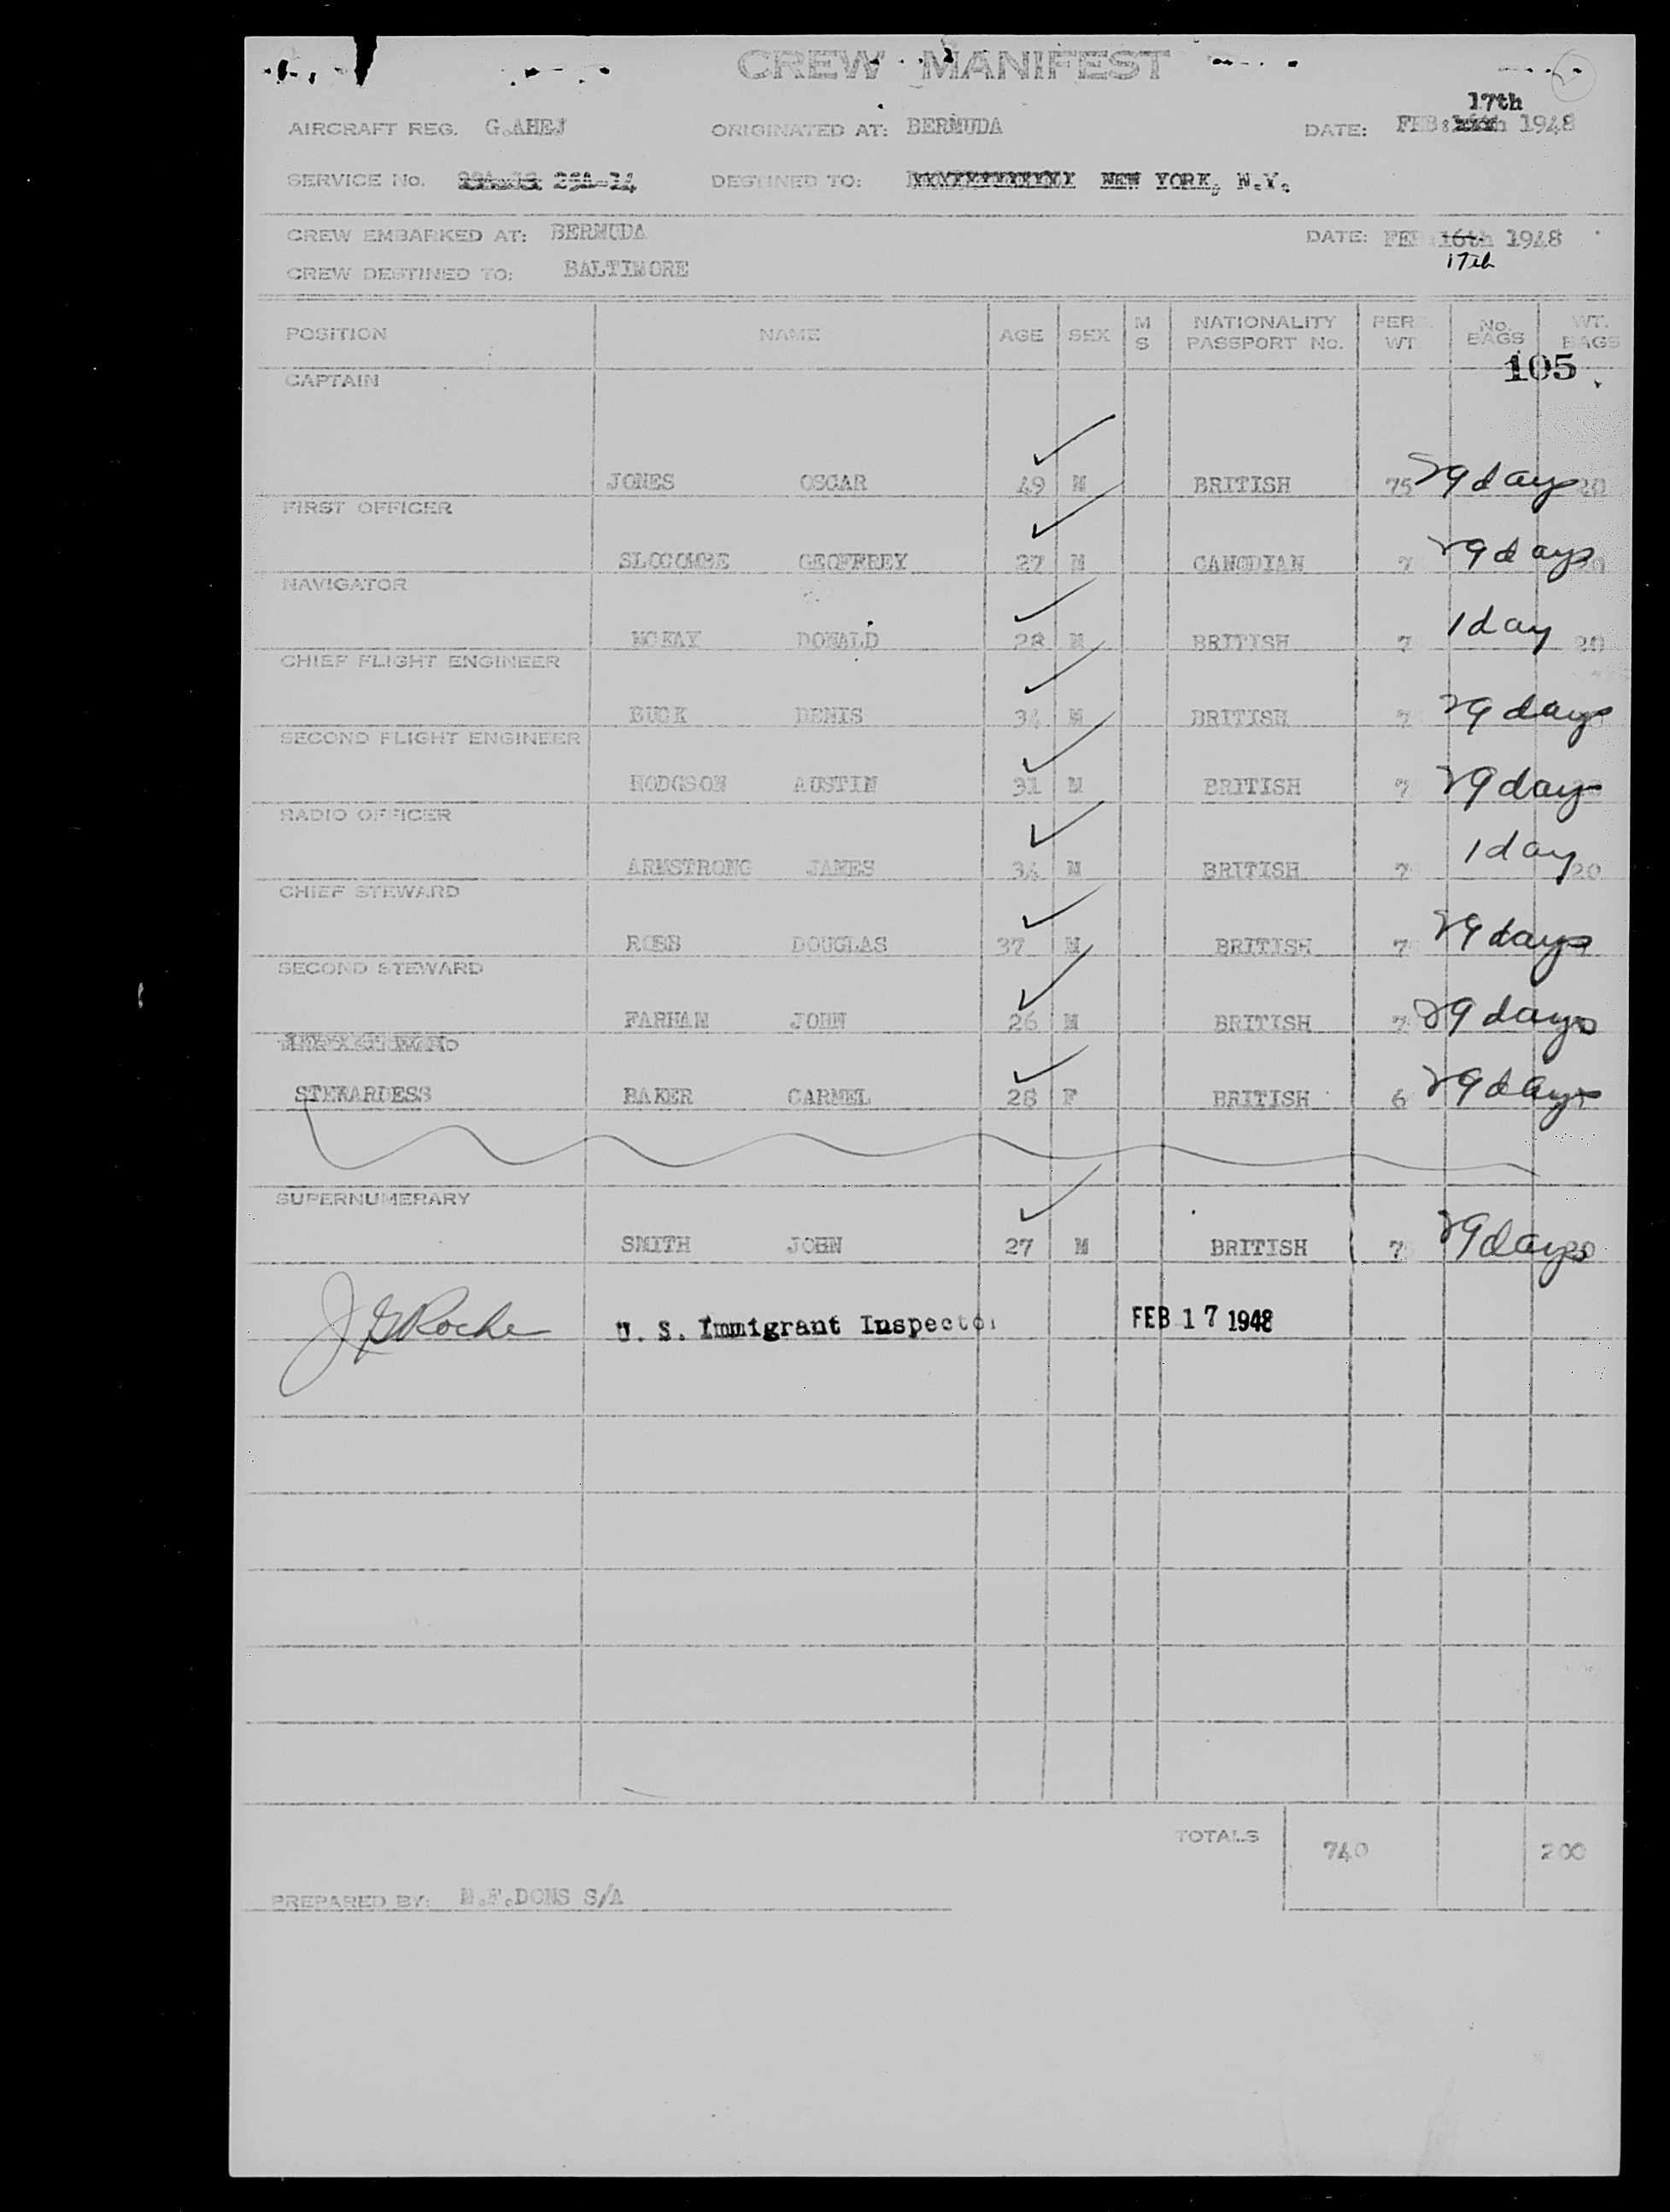 CREW MANIFEST
17th
AIRCRAFT REG. G.AHEJ ORIGINATED AT: BERMUDA DATE: FEB: 1948
SERVICE No. 25A-14 DESTINED TO: NEW YORK, N.Y.
CREW EMBARKED AT: BERMUDA DATE: FEB 16th 1948
17th
CREW DESTINED TO: BALTIMORE
POSITION NAME AGE SEX M S NATIONALITY PASSPORT No. PER. WT. No. BAGS WT. BAGS
105
CAPTAIN
JONES OSCAR 49 M BRITISH 75 29 days 20
FIRST OFFICER
SLOCOMBE GEOFFREY 27 M CANODIAN 7 29 days 20
NAVIGATOR
MCKAY DONALD 28 M BRITISH 7 1 day 20
CHIEF FLIGHT ENGINEER
BUCK DENIS 34 M BRITISH 7 29 days
SECOND FLIGHT ENGINEER
HODGSON AUSTIN 31 M BRITISH 7 29 days
RADIO OFFICER
ARMSTRONG JAMES 34 M BRITISH 7 1 day 20
CHIEF STEWARD
ROSS DOUGLAS 37 M BRITISH 7 29 days
SECOND STEWARD
FARHAM JOHN 26 M BRITISH 7 29 days
STEWARDESS BAKER CARMEL 28 F BRITISH 6 29 days
SUPERNUMERARY
SMITH JOHN 27 M BRITISH 7 29 days 20
J G Roche U. S. Immigrant Inspector FEB 17 1948
TOTALS 740 200
PREPARED BY: DONS S/A